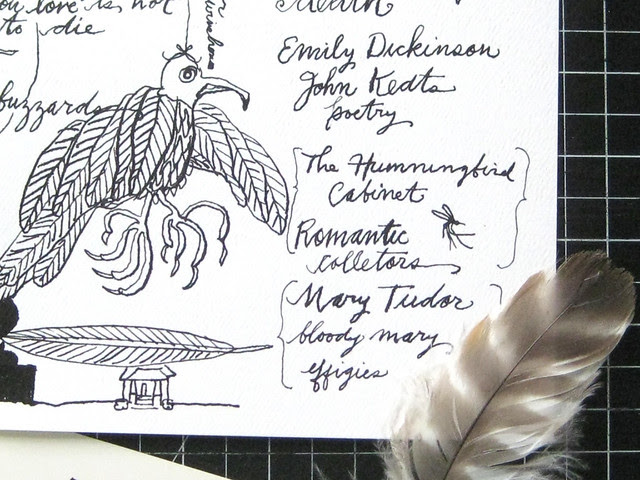 love is not
to die
buzzards
Emily Dickinson
John Keats
poetry
The Hummingbird
Cabinet
Romantic
colletors
Mary Tudor
bloody mary
effigies